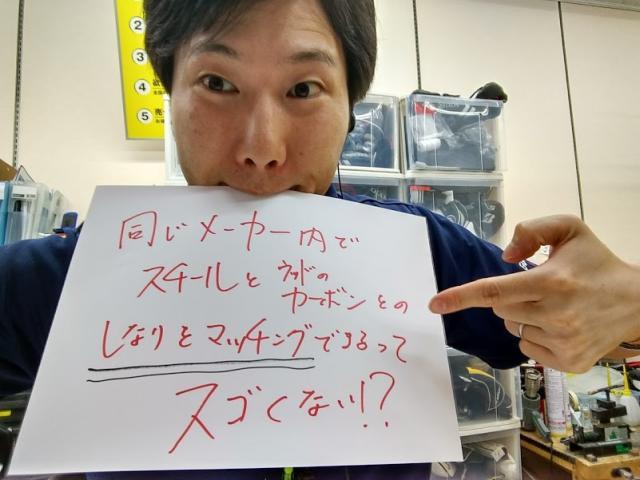 ②
③
④
⑤
同じメーカー内で
スチールと ウッドの
カーボンとの
しなりをマッチングできるって
スゴくない!?